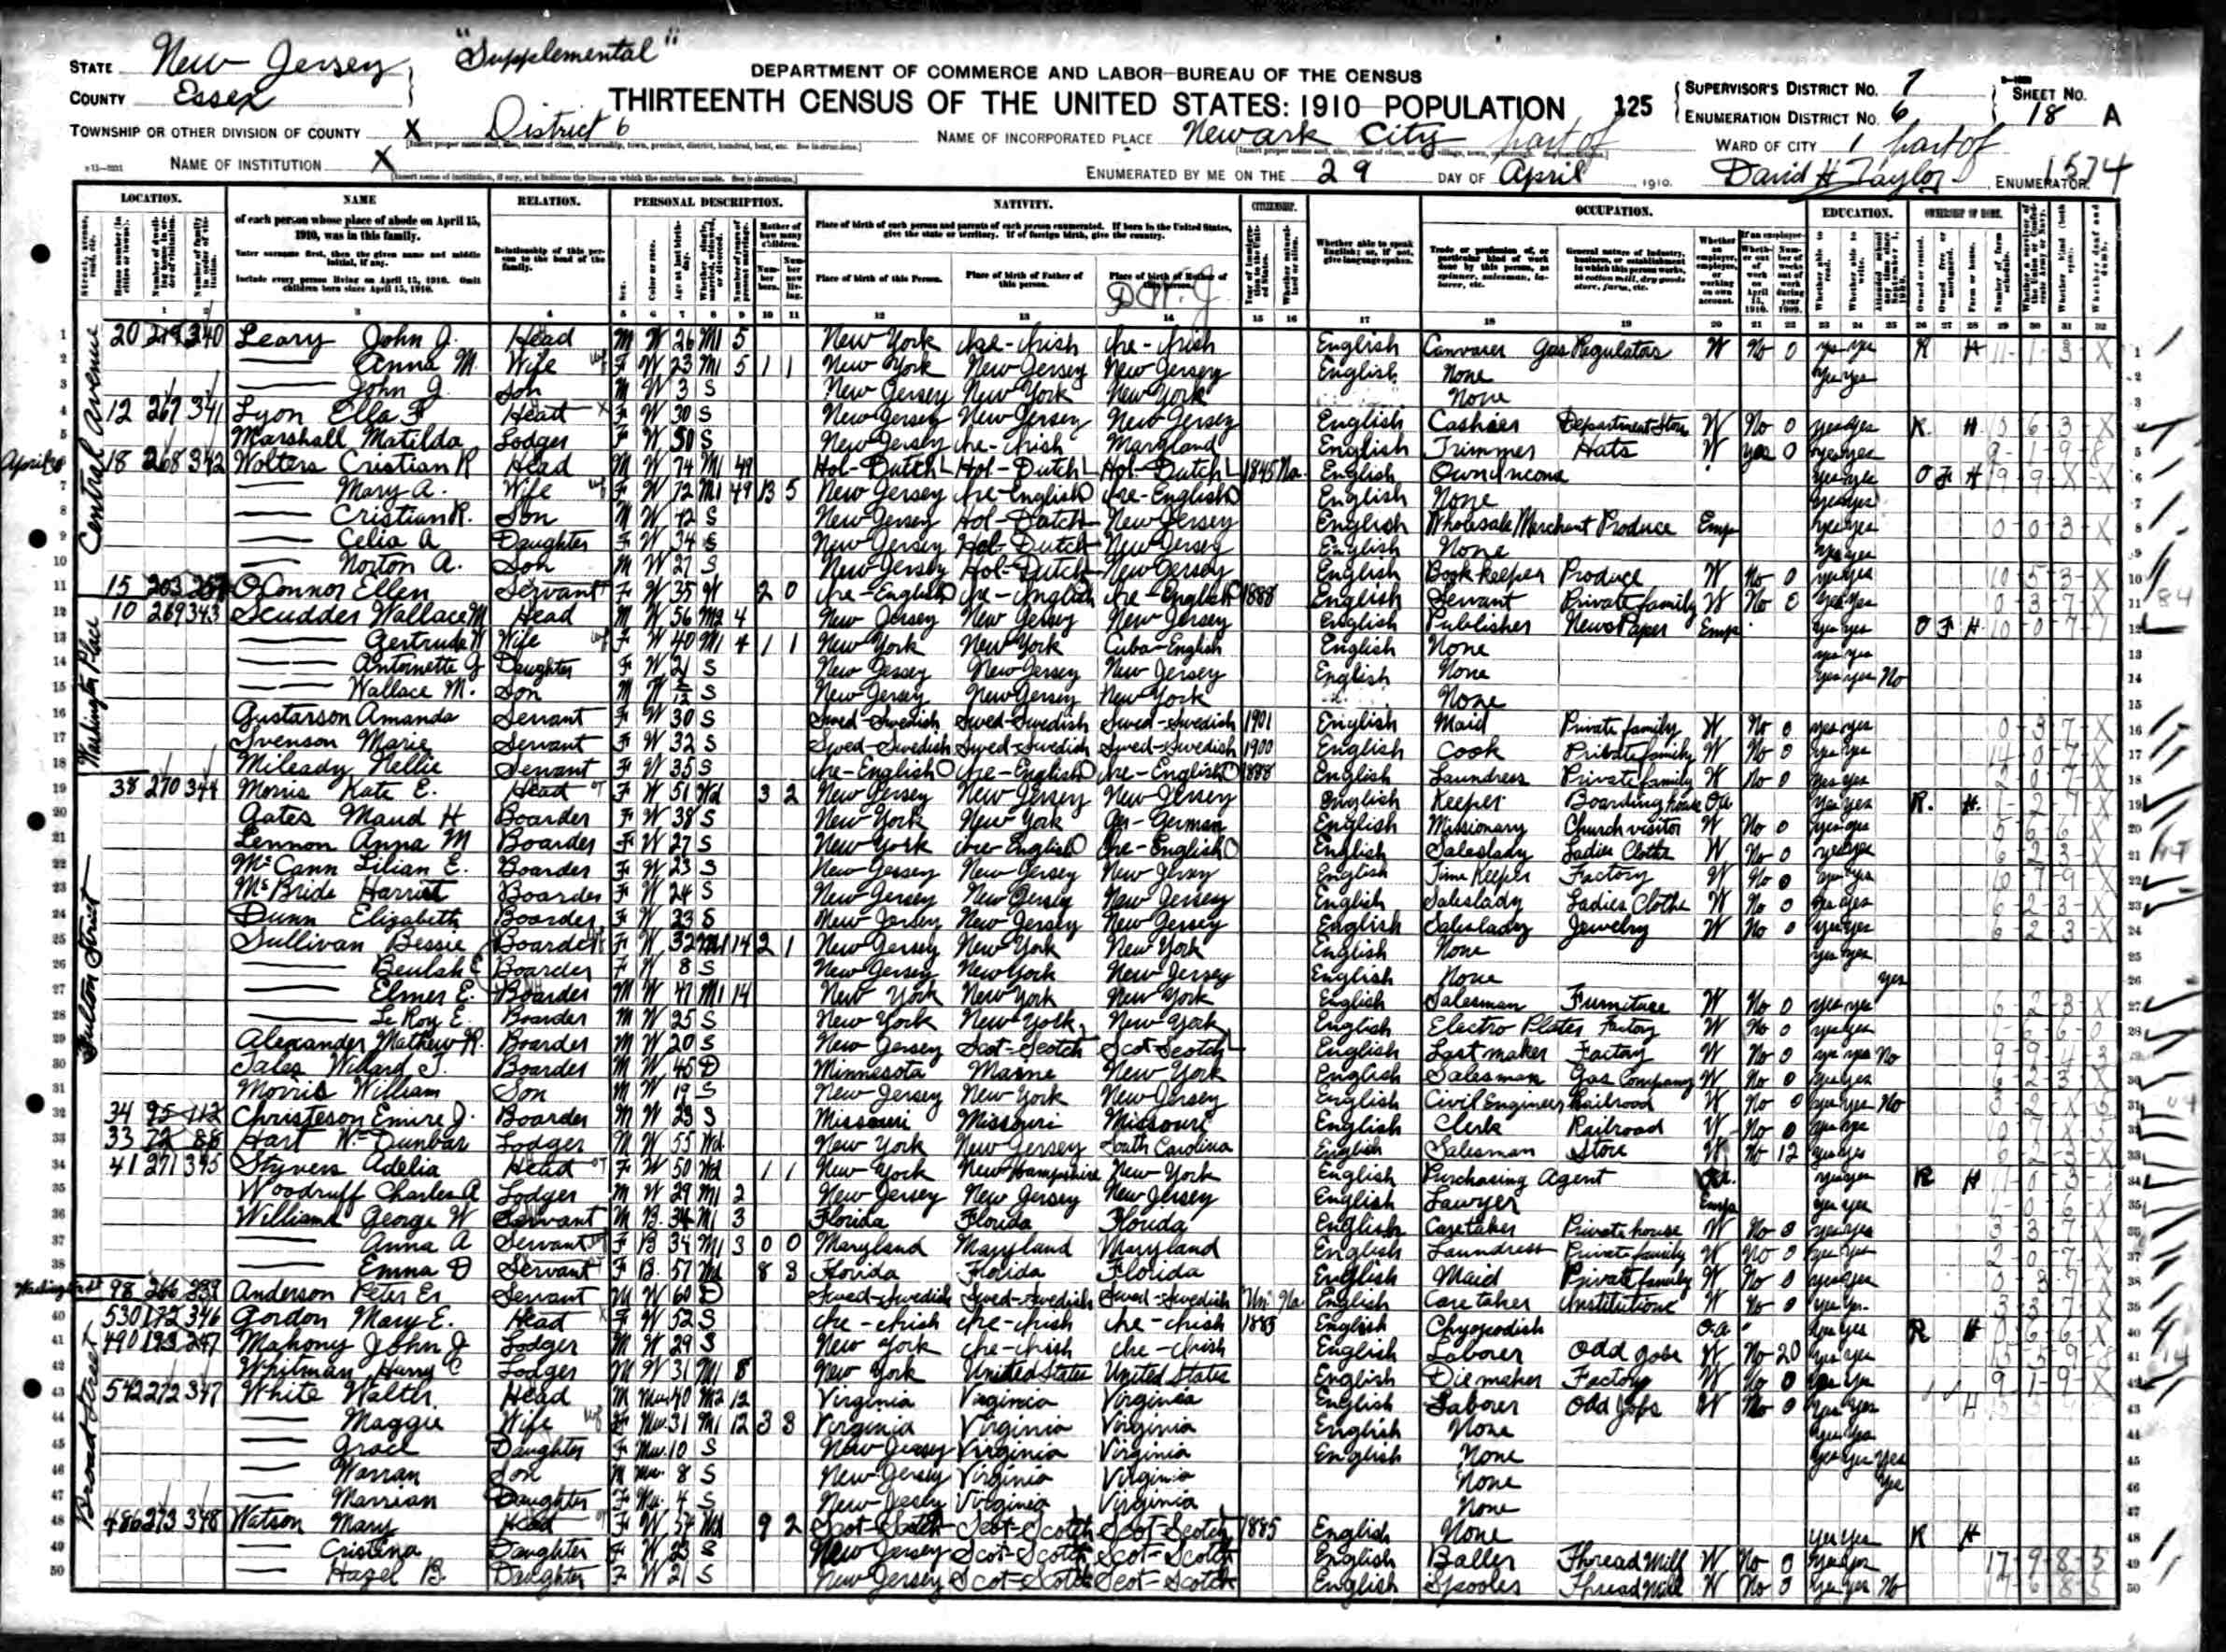 STATE New Jersey "Supplemental"
DEPARTMENT OF COMMERCE AND LABOR—BUREAU OF THE CENSUS
COUNTY Essex
THIRTEENTH CENSUS OF THE UNITED STATES: 1910—POPULATION 125
SUPERVISOR'S DISTRICT No. 7
ENUMERATION DISTRICT No. 6
SHEET No. 18 A
TOWNSHIP OR OTHER DIVISION OF COUNTY X District 6
NAME OF INCORPORATED PLACE Newark City part of
WARD OF CITY 1 part of
NAME OF INSTITUTION X
ENUMERATED BY ME ON THE 29 DAY OF April, 1910. David H Taylor, ENUMERATOR. 1574
LOCATION. NAME RELATION. PERSONAL DESCRIPTION. NATIVITY. CITIZENSHIP. OCCUPATION. EDUCATION. OWNERSHIP OF HOME.
of each person whose place of abode on April 15, 1910, was in this family.
Enter surname first, then the given name and middle initial, if any.
Include every person living on April 15, 1910. Omit children born since April 15, 1910.
Relationship of this person to the head of the family.
Place of birth of each person and parents of each person enumerated. If born in the United States, give the state or territory. If of foreign birth, give the country.
Place of birth of this Person. Place of birth of Father of this person. Place of birth of Mother of this person.
Whether able to speak English; or, if not, give language spoken.
Central Avenue
1 20 340 Leary John J. Head M W 26 M1 5 New York Ire-Irish Ire-Irish English Canvaser Gas Regulators W No 0 yes yes R H
2 Anna M. Wife F W 23 M1 5 1 1 New York New Jersey New Jersey English None yes yes
3 John J. Son M W 3 S New Jersey New York New York None
4 12 267 341 Lyon Ella F Head F W 30 S New Jersey New Jersey New Jersey English Cashier Department Store W No 0 yes yes R H
5 Marshall Matilda Lodger F W 50 S New Jersey Ire-Irish Maryland English Trimmer Hats W yes 0 yes yes
6 18 268 342 Wolters Cristian R Head M W 74 M1 49 Hol-Dutch Hol-Dutch Hol-Dutch 1845 Na English Own Income yes yes O F H
7 Mary A. Wife F W 72 M1 49 13 5 New Jersey Ire-English Ire-English English None yes yes
8 Cristian R. Son M W 42 S New Jersey Hol-Dutch New Jersey English Wholesale Merchant Produce Emp yes yes
9 Celia A Daughter F W 34 S New Jersey Hol-Dutch New Jersey English None yes yes
10 Norton A. Son M W 27 S New Jersey Hol-Dutch New Jersey English Bookkeeper Produce W No 0 yes yes
11 15 203 O'Connor Ellen Servant F W 35 W 2 0 Ire-English Ire-English Ire-English 1888 English Servant Private family W No 0 yes yes
Washington Place
12 10 269 343 Scudder Wallace M Head M W 56 M2 4 New Jersey New Jersey New Jersey English Publisher News Paper Emp yes yes O F H
13 Gertrude W Wife F W 40 M1 4 1 1 New York New York Cuba-English English None yes yes
14 Antoinette J Daughter F W 21 S New Jersey New Jersey New Jersey English None yes yes No
15 Wallace M. Son M W S New Jersey New Jersey New York None
16 Gustarson Amanda Servant F W 30 S Swed-Swedish Swed-Swedish Swed-Swedish 1901 English Maid Private family W No 0 yes yes
17 Svenson Marie Servant F W 32 S Swed-Swedish Swed-Swedish Swed-Swedish 1900 English Cook Private family W No 0 yes yes
18 Mileady Nellie Servant F W 35 S Ire-English Ire-English Ire-English 1888 English Laundress Private family W No 0 yes yes
Fulton Street
19 38 270 344 Morris Kate E. Head F W 51 Wd 3 2 New Jersey New Jersey New Jersey English Keeper Boarding house Oa yes yes R. H.
20 Gates Maud H Boarder F W 38 S New York New York Ger-German English Missionary Church visitor W No 0 yes yes
21 Lennon Anna M Boarder F W 27 S New York Ire-English Ire-English English Saleslady Ladies Clothe W No 0 yes yes
22 McCann Lilian E. Boarder F W 23 S New Jersey New Jersey New Jersey English Time Keeper Factory W No 0 yes yes
23 McBride Harriet Boarder F W 24 S New Jersey New Jersey New Jersey English Saleslady Ladies Clothe W No 0 yes yes
24 Dunn Elizabeth Boarder F W 23 S New Jersey New Jersey New Jersey English Saleslady Jewelry W No 0 yes yes
25 Sullivan Bessie Boarder F W 32 M1 14 2 1 New Jersey New York New York English None yes yes
26 Beulah E Boarder F W 8 S New Jersey New York New Jersey English None yes
27 Elmer E. Boarder M W 47 M1 14 New York New York New York English Salesman Furniture W No 0 yes yes
28 Le Roy E. Boarder M W 25 S New York New York New York English Electro Plater Factory W No 0 yes yes
29 Alexander Mathew R. Boarder M W 20 S New Jersey Scot-Scotch Scot-Scotch English Last maker Factory W No 0 yes yes No
30 Willard J. Boarder M W 45 D Minnesota Maine New York English Salesman Gas Company W No 0 yes yes
31 Morris William Son M W 19 S New Jersey New York New Jersey English Civil Engineer Railroad W No 0 yes yes No
32 34 95 112 Christeson Emire J. Boarder M W 23 S Missouri Missouri Missouri English Clerk Railroad W No 0 yes yes
33 33 72 88 Hart Wm Dunbar Lodger M W 55 Wd New York New Jersey South Carolina English Salesman Store W No 12 yes yes
34 41 271 345 Styvers Adelia Head F W 50 Wd 1 1 New York New Hampshire New York English Purchasing Agent Oa. yes yes R H
35 Woodruff Charles A Lodger M W 29 M1 2 New Jersey New Jersey New Jersey English Lawyer Emp yes yes
36 Williams George W Servant M B 34 M1 3 Florida Florida Florida English Caretaker Private house W No 0 yes yes
37 Anna A Servant F B 34 M1 3 0 0 Maryland Maryland Maryland English Laundress Private family W No 0 yes yes
38 Emma D Servant F B 57 Wd 8 3 Florida Florida Florida English Maid Private family W No 0 yes yes
39 98 266 339 Anderson Peter Er Servant M W 60 D Swed-Swedish Swed-Swedish Swed-Swedish Un Na English Care taker Institutions W No 0 yes yes
Broad Street
40 530 172 346 Gordon Mary E. Head F W 52 S Ire-Irish Ire-Irish Ire-Irish 1885 English Chyopodish O.a. yes yes R H
41 490 193 247 Mahony John J Lodger M W 29 S New York Ire-Irish Ire-Irish English Laborer Odd Jobs W No 20 yes yes
42 Whitman Harry C Lodger M W 31 M1 8 New York United States United States English Die maker Factory W No 0 yes yes
43 542 272 347 White Walter Head M Mu 40 M2 12 Virginia Virginia Virginia English Laborer Odd Jobs W No 0 yes yes H
44 Maggie Wife F Mu 31 M1 12 3 3 Virginia Virginia Virginia English None yes yes
45 Grace Daughter F Mu 10 S New Jersey Virginia Virginia English None yes yes yes
46 Warran Son M Mu 8 S New Jersey Virginia Virginia None yes
47 Marrian Daughter F Mu 4 S New Jersey Virginia Virginia None
48 486 273 348 Watson Mary Head F W 57 Wd 9 2 Scot-Scotch Scot-Scotch Scot-Scotch 1885 English None yes yes R H
49 Cristina Daughter F W 23 S New Jersey Scot-Scotch Scot-Scotch English Baller Thread Mill W No 0 yes yes
50 Hazel B. Daughter F W 21 S New Jersey Scot-Scotch Scot-Scotch English Spooler Thread Mill W No 0 yes yes No